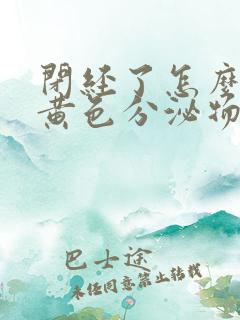 閉経了怎麼
黄色分泌物
巴士途
未经同意禁止转载